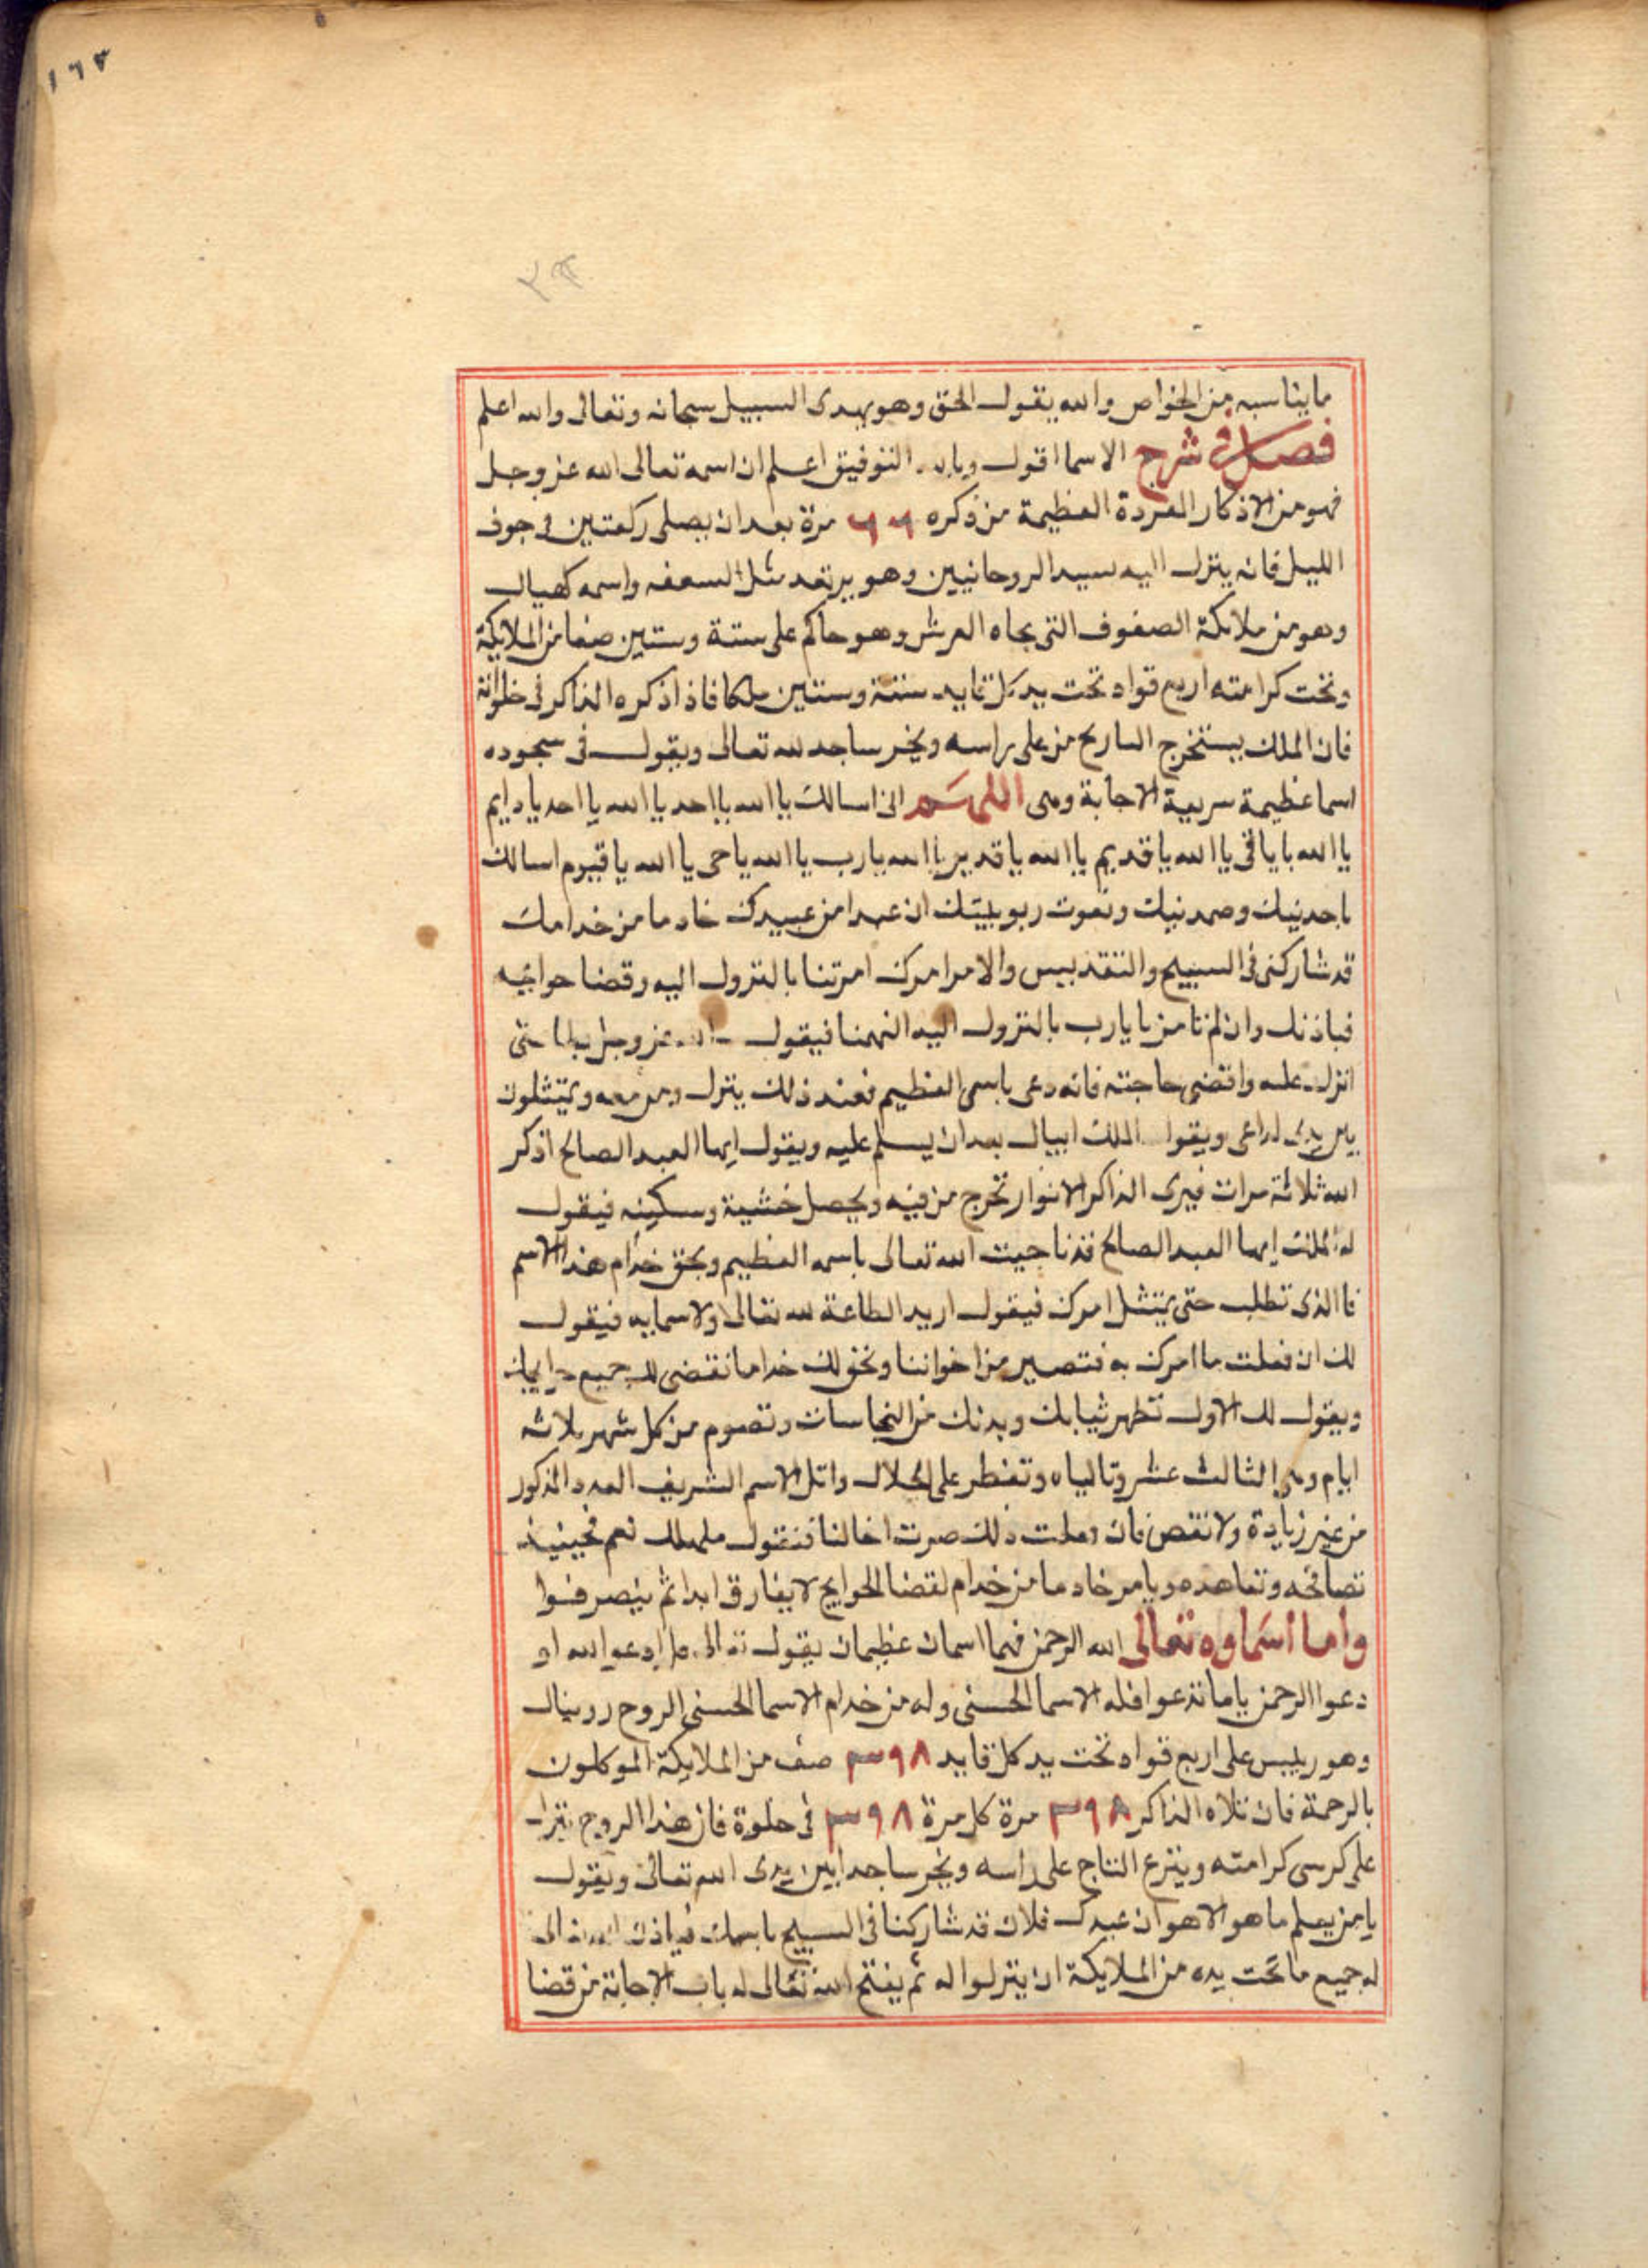 ١٦٣
ما يناسبه من الخواص والله يقول الحق وهو يهدى السبيل سبحانه وتعالى والله اعلم
فصل فى شرح الاسما اقول وبالله التوفيق اعلم ان اسمه تعالى الله عز وجل
فهو من الاذكار المفردة العظيمة من ذكره ٦٦ مرة بعد ان يصلى ركعتين فى جوف
الليل فانه ينزل اليه سيد الروحانيين وهو يرتعد مثل السعفه واسمه كهيال
وهو من ملائكة الصفوف التى تجاه العرش وهو حاكم على ستة وستين صفا من الملايكة
وتحت كرامته اربع قواد تحت يد كل قايد ستة وستين ملكا فاذا ذكره الذاكر فى خلواته
فان الملك يستخرج التاريج من على راسه ويخر ساجد لله تعالى ويقول فى سجوده
اسما عظيمة سريعة الاجابة وهى اللهم انى اسالك يا الله يا احد يا الله يا احد يا دايم
يا الله يا باقى يا الله يا قديم يا الله يا قدير يا الله يا رب يا الله يا حى يا الله يا قيوم اسالك
باحدنيك وصمدنيك ونعوت ربوبيتك ان عبدا من عبيدك خادما من خدامك
قد شاركنى فى السبيح والتقديس والامر امرك امرتنا بالنزول اليه وقضا حوايجه
فباذنك وان لم تامرنا يا رب بالنزول اليه الهمنا فيقول الله عز وجل حتى
انزل عليه واقضى حاجته فانه دعى باسمى العظيم فعند ذلك ينزل ومن معه ويتمثلون
بين يدى الداعى ويقول الملك ابيال بعد ان يسلم عليه ويقول ايها العبد الصالح اذكر
الله ثلاثة مرات فيرى الذاكر الانوار تخرج من فيه ويحصل خشية وسكينه فيقول
له الملك ايها العبد الصالح قد ناجيت الله تعالى باسمه العظيم وبحق خدام هذا الاسم
فا الذى تطلب حتى يمتثل امرك فيقول اريد الطاعة لله تعالى ولاسمايه فيقول
لك ان فعلت ما امرك به فتصير من اخواننا ونحن لك خداما نقضى لك جميع حوايجك
ويقول لك الاول تطهر ثيابك وبدنك من النجاسات وتصوم من كل شهر ثلاثه
ايام وهى الثالث عشر وتالياه وتفطر على الحلال واتل الاسم الشريف العدد المذكور
من غير زيادة ولا نقص فان فعلت ذلك صرت اخا لنا فنقول نعم فحينيذ
تصافحه وتعاهده ويامر خادما من خدام لقضا الحوايج لا يفارق ابدا ثم ينصرفوا
واما اسماوه تعالى الله الرحمن فهما اسمان عظيمان يقول تعالى قل ادعوا الله او
دعوا الرحمن ياما تدعوا فله الاسما الحسنى وله من خدام الاسما الحسنى الروح
وهو رييس على اربع قواد تحت يد كل قايد ٣٩٨ صف من الملايكة الموكلون
بالرحمة فان تلاه الذاكر ٣٩٨ مرة كل مرة ٣٩٨ فى خلوة فان هذا الروح ينزل
على كرسى كرامته وينزع التاج على راسه ويخر ساجدا بين يدى الله تعالى ويقول
يا من يعلم ما هو الا هو ان عبدك فلان قد شاركنا فى السبيح باسمك فياذن الله تعالى
له جميع ما تحت يده من الملايكة ان ينزلوا له ثم يفتح الله تعالى له باب الاجابة من قضا